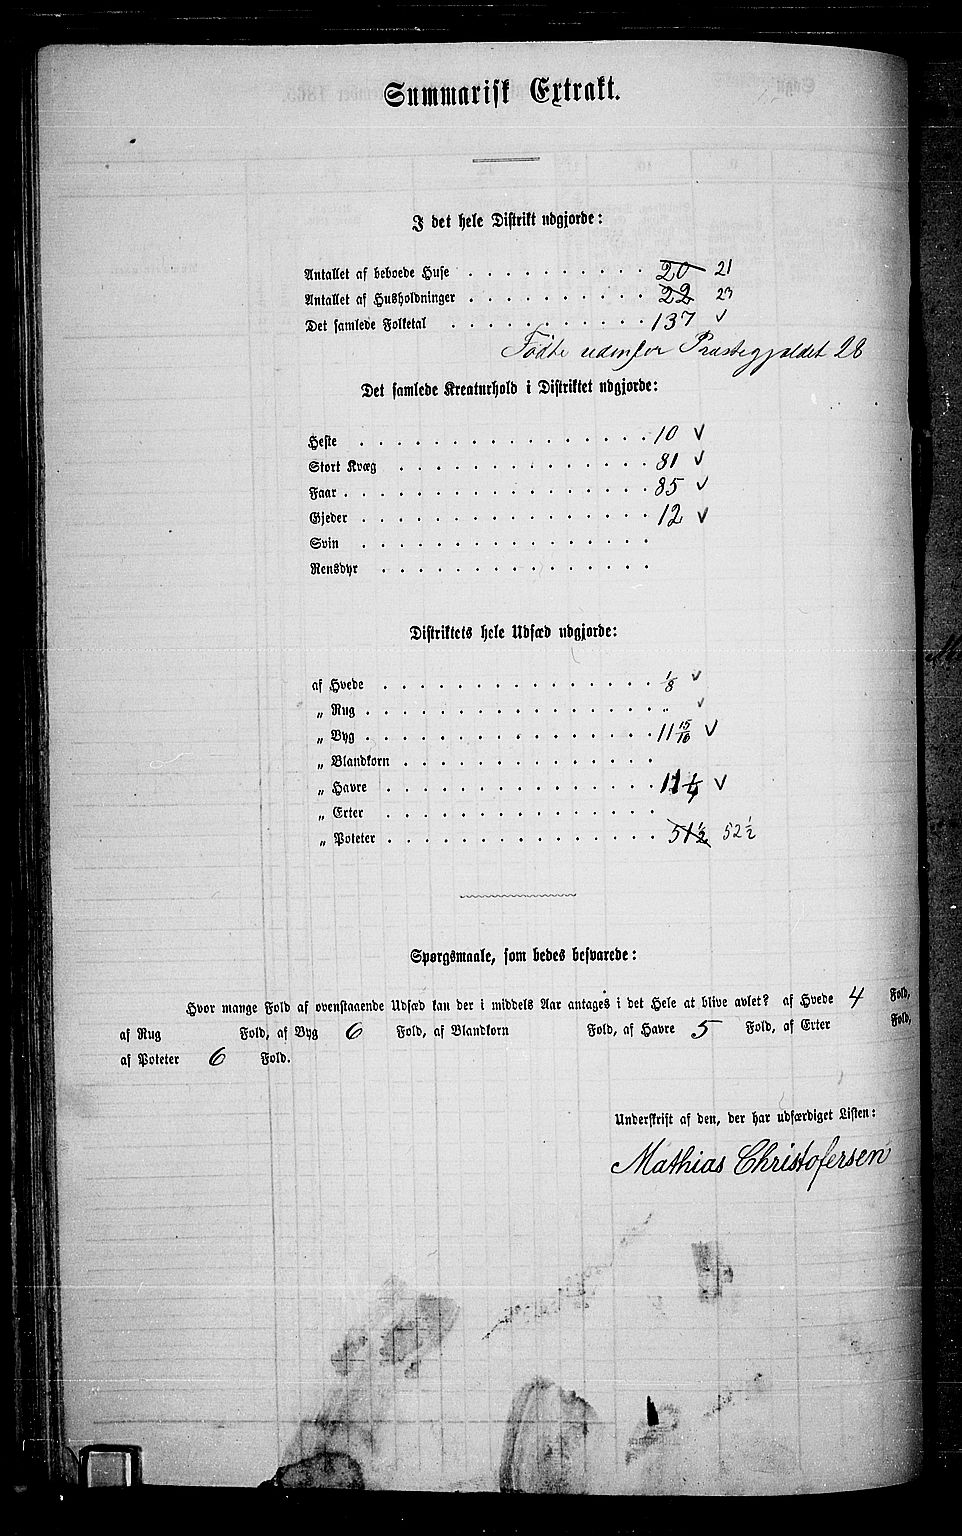 Summarisk Extrakt.
I det hele Distrikt udgjorde:
Antallet af beboede Huse . . . . . . . . . . 20 21
Antallet af Husholdninger . . . . . . . . . . 22 23
Det samlede Folketal . . . . . . . . . . . 137 ✓
Fødte udenfor Præstegjældet 28
Det samlede Kreaturhold i Distriktet udgjorde:
Heste . . . . . . . . . . . . . . . . 10 ✓
Stort Kvæg . . . . . . . . . . . . . . 81 ✓
Faar . . . . . . . . . . . . . . . . . 85 ✓
Gjeder . . . . . . . . . . . . . . . . 12 ✓
Svin . . . . . . . . . . . . . . . .
Rensdyr . . . . . . . . . . . . . . .
Distriktets hele Udsæd udgjorde:
af Hvede . . . . . . . . . . . . . . . 1/8 ✓
„ Rug . . . . . . . . . . . . . . . . „ ✓
„ Byg . . . . . . . . . . . . . . . . 11 15/16 ✓
„ Blandkorn . . . . . . . . . . . . . .
„ Havre . . . . . . . . . . . . . . . 11 1/4 ✓
„ Erter . . . . . . . . . . . . . . .
„ Poteter . . . . . . . . . . . . . . . 51 1/2 52 1/2
Spørgsmaale, som bedes besvarede:
Hvor mange Fold af ovenstaaende Udsæd kan der i middels Aar antages i det Hele at blive avlet? af Hvede 4 Fold,
af Rug Fold, af Byg 6 Fold, af Blandkorn Fold, af Havre 5 Fold, af Erter Fold,
af Poteter 6 Fold.
Underskrift af den, der har udfærdiget Listen:
Mathias Christofersen